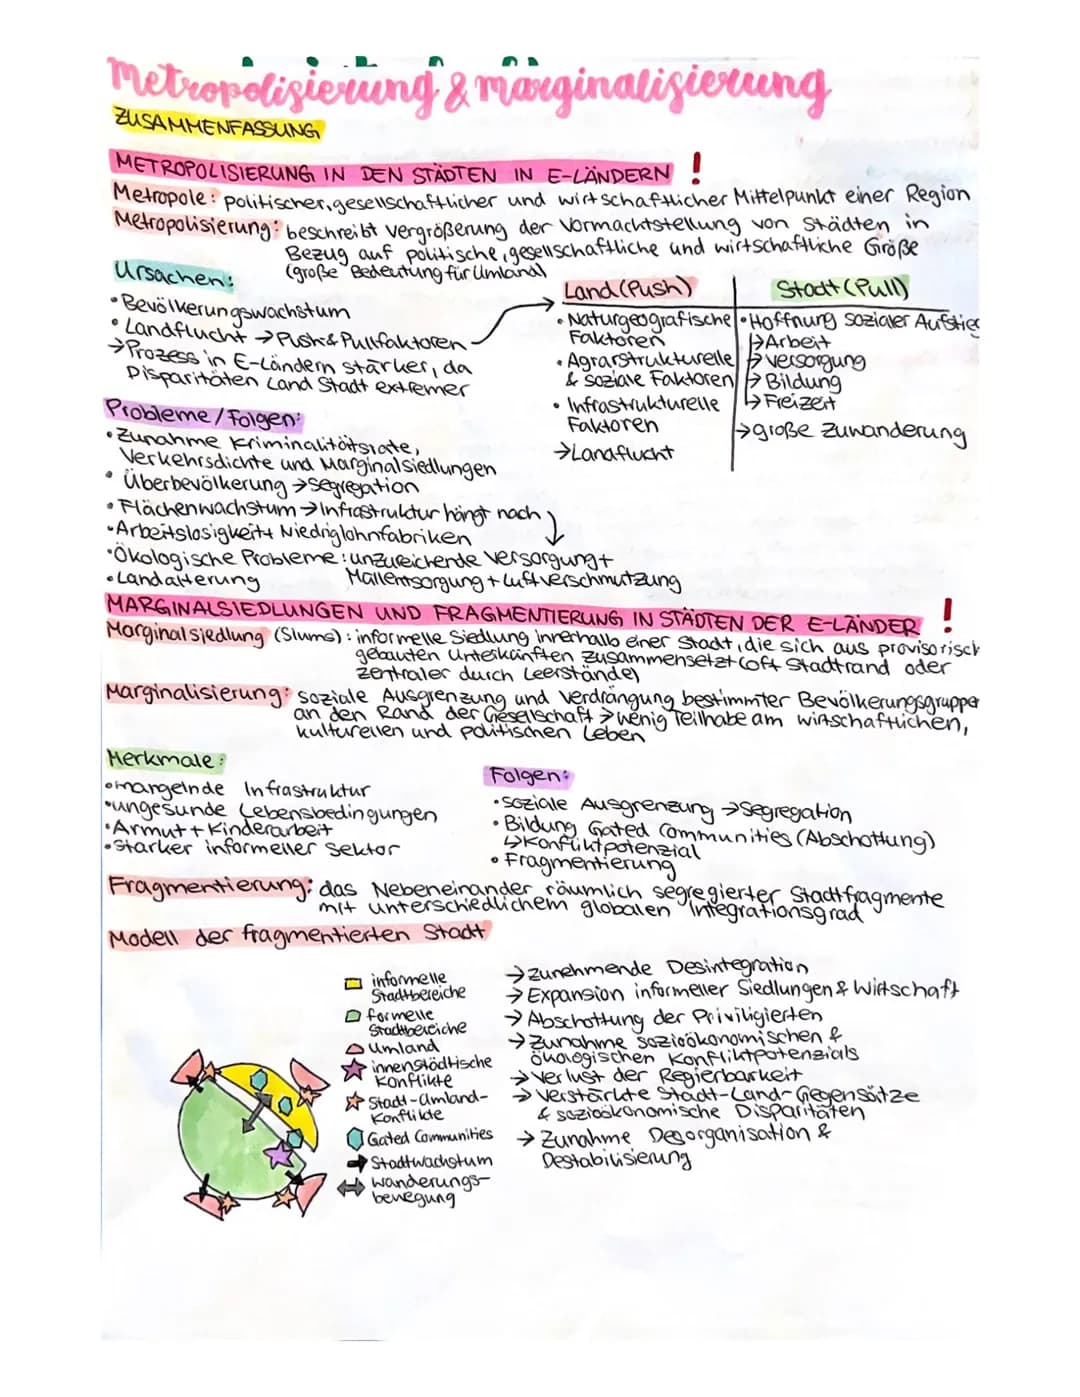 Metropolisierung & Marginalisierung
ZUSAMMENFASSUNG
METROPOLISIERUNG IN DEN STÄDTEN IN E-LÄNDERN !
Metropole: politischer, gesellschaftlicher und wirtschaftlicher Mittelpunkt einer Region
Metropolisierung: beschreibt Vergrößerung der Vormachtstellung von Städten in
Bezug auf politische, gesellschaftliche und wirtschaftliche Größe
(große Bedeutung für Umland)
Ursachen:
• Bevölkerungswachstum
• Landflucht → Push & Pullfaktoren
→ Prozess in E-Ländern stärker, da
Disparitäten Land Stadt extremer
Land (Push)
• Naturgeografische
Faktoren
• Agrarstrukturelle
& soziale Faktoren
• Infrastrukturelle
Faktoren
→ Landflucht
Stadt (Pull)
• Hoffnung sozialer Aufstieg
↳ Arbeit
↳ Versorgung
↳ Bildung
↳ Freizeit
→ große Zuwanderung
Probleme/Folgen:
• Zunahme Kriminalitätsrate,
Verkehrsdichte und Marginalsiedlungen
• Überbevölkerung → Segregation
• Flächenwachstum → Infrastruktur hängt nach
• Arbeitslosigkeit + Niedriglohnfabriken
• Ökologische Probleme: unzureichende Versorgung +
Müllentsorgung + Luftverschmutzung
• Landalterung
MARGINALSIEDLUNGEN UND FRAGMENTIERUNG IN STÄDTEN DER E-LÄNDER !
Marginalsiedlung (Slums): informelle Siedlung innerhalb einer Stadt, die sich aus provisorisch
gebauten Unterkünften zusammensetzt (oft Stadtrand oder
zentraler durch Leerstände)
Marginalisierung: soziale Ausgrenzung und Verdrängung bestimmter Bevölkerungsgruppe
an den Rand der Gesellschaft > wenig Teilhabe am wirtschaftlichen,
kulturellen und politischen Leben
Merkmale:
• mangelnde Infrastruktur
• ungesunde Lebensbedingungen
• Armut + Kinderarbeit
• starker informeller Sektor
Folgen:
• soziale Ausgrenzung → Segregation
• Bildung Gated Communities (Abschottung)
↳ Konfliktpotenzial
• Fragmentierung
Fragmentierung: das Nebeneinander räumlich segregierter Stadtfragmente
mit unterschiedlichem globalen Integrationsgrad
Modell der fragmentierten Stadt
informelle
Stadtbereiche
formelle
Stadtbereiche
Umland
innenstädtische
Konflikte
Stadt-Umland-
Konflikte
Gated Communities
Stadtwachstum
Wanderungs-
bewegung
→ zunehmende Desintegration
→ Expansion informeller Siedlungen & Wirtschaft
→ Abschottung der Priviligierten
→ Zunahme sozioökonomischen &
ökologischen Konfliktpotenzials
→ Verlust der Regierbarkeit
→ Verstärkte Stadt-Land-Gegensätze
& sozioökonomische Disparitäten
→ Zunahme Desorganisation &
Destabilisierung